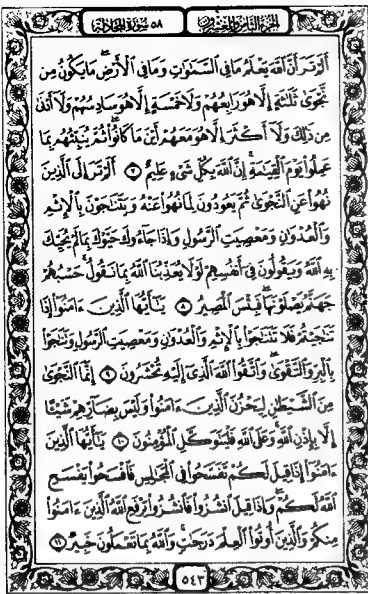 الجزء الثامن والعشرون
٥٨ سورة المجادلة
أَلَمْ تَرَ أَنَّ ٱللَّهَ يَعْلَمُ مَا فِى ٱلسَّمَٰوَٰتِ وَمَا فِى ٱلْأَرْضِ ۖ مَا يَكُونُ مِن
نَّجْوَىٰ ثَلَٰثَةٍ إِلَّا هُوَ رَابِعُهُمْ وَلَا خَمْسَةٍ إِلَّا هُوَ سَادِسُهُمْ وَلَآ أَدْنَىٰ
مِن ذَٰلِكَ وَلَآ أَكْثَرَ إِلَّا هُوَ مَعَهُمْ أَيْنَ مَا كَانُوا۟ ۖ ثُمَّ يُنَبِّئُهُم بِمَا
عَمِلُوا۟ يَوْمَ ٱلْقِيَٰمَةِ ۚ إِنَّ ٱللَّهَ بِكُلِّ شَىْءٍ عَلِيمٌ ٧ أَلَمْ تَرَ إِلَى ٱلَّذِينَ
نُهُوا۟ عَنِ ٱلنَّجْوَىٰ ثُمَّ يَعُودُونَ لِمَا نُهُوا۟ عَنْهُ وَيَتَنَٰجَوْنَ بِٱلْإِثْمِ
وَٱلْعُدْوَٰنِ وَمَعْصِيَتِ ٱلرَّسُولِ وَإِذَا جَآءُوكَ حَيَّوْكَ بِمَا لَمْ يُحَيِّكَ
بِهِ ٱللَّهُ وَيَقُولُونَ فِىٓ أَنفُسِهِمْ لَوْلَا يُعَذِّبُنَا ٱللَّهُ بِمَا نَقُولُ ۚ حَسْبُهُمْ
جَهَنَّمُ يَصْلَوْنَهَا ۖ فَبِئْسَ ٱلْمَصِيرُ ٨ يَٰٓأَيُّهَا ٱلَّذِينَ ءَامَنُوٓا۟ إِذَا
تَنَٰجَيْتُمْ فَلَا تَتَنَٰجَوْا۟ بِٱلْإِثْمِ وَٱلْعُدْوَٰنِ وَمَعْصِيَتِ ٱلرَّسُولِ وَتَنَٰجَوْا۟
بِٱلْبِرِّ وَٱلتَّقْوَىٰ ۖ وَٱتَّقُوا۟ ٱللَّهَ ٱلَّذِىٓ إِلَيْهِ تُحْشَرُونَ ٩ إِنَّمَا ٱلنَّجْوَىٰ
مِنَ ٱلشَّيْطَٰنِ لِيَحْزُنَ ٱلَّذِينَ ءَامَنُوا۟ وَلَيْسَ بِضَآرِّهِمْ شَيْـًٔا
إِلَّا بِإِذْنِ ٱللَّهِ ۚ وَعَلَى ٱللَّهِ فَلْيَتَوَكَّلِ ٱلْمُؤْمِنُونَ ١٠ يَٰٓأَيُّهَا ٱلَّذِينَ
ءَامَنُوٓا۟ إِذَا قِيلَ لَكُمْ تَفَسَّحُوا۟ فِى ٱلْمَجَٰلِسِ فَٱفْسَحُوا۟ يَفْسَحِ
ٱللَّهُ لَكُمْ ۖ وَإِذَا قِيلَ ٱنشُزُوا۟ فَٱنشُزُوا۟ يَرْفَعِ ٱللَّهُ ٱلَّذِينَ ءَامَنُوا۟
مِنكُمْ وَٱلَّذِينَ أُوتُوا۟ ٱلْعِلْمَ دَرَجَٰتٍ ۚ وَٱللَّهُ بِمَا تَعْمَلُونَ خَبِيرٌ ١١
٥٤٣